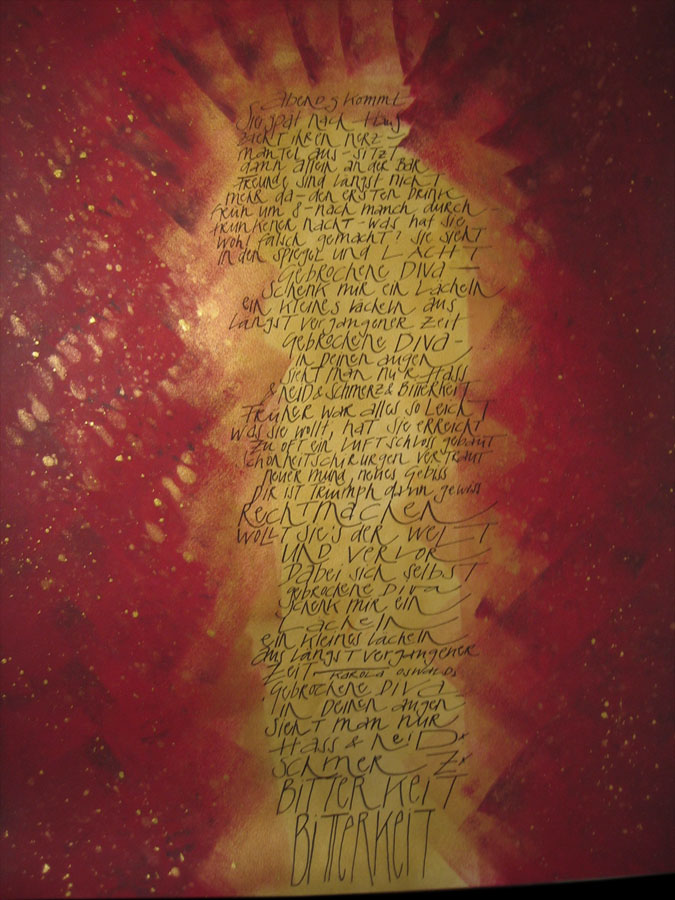 abends kommt
sie spät nach Haus
zieht ihren nerz-
mantel aus - sitzt
dann allein an der Bar
Freunde sind längst nicht
mehr da - den ersten Drink
früh um 8 - nach manch durch-
trunkener nacht - was hat sie
wohl falsch gemacht? sie sieht
in den spiegel und LACHT
Gebrochene DIVA -
schenk mir ein Lächeln
ein kleines Lächeln aus
längst vergangener Zeit
Gebrochene DIVA -
in deinen augen
sieht man nur Hass
& neID & schmerz & Bitterkeit
Früher war alles so leicht
was sie wollt, hat sie erreicht
zu oft ein Luftschloss gebaut
schönheitschirurgen vertraut
neuer mund, neues Gebiss
Dir ist Triumph dann gewiss
Rechtmachen
wollt sie's der WELT
UND VERLOR
Dabei sich selbst
gebrochene Diva
schenk mir ein
Lächeln
ein kleines Lächeln
aus längst vergangener
Zeit - Karola Oswalds
Gebrochene DIVA
in Deinen augen
sieht man nur
Hass & neiD
schmerZ
BITTERKEIT
BITTERKEIT